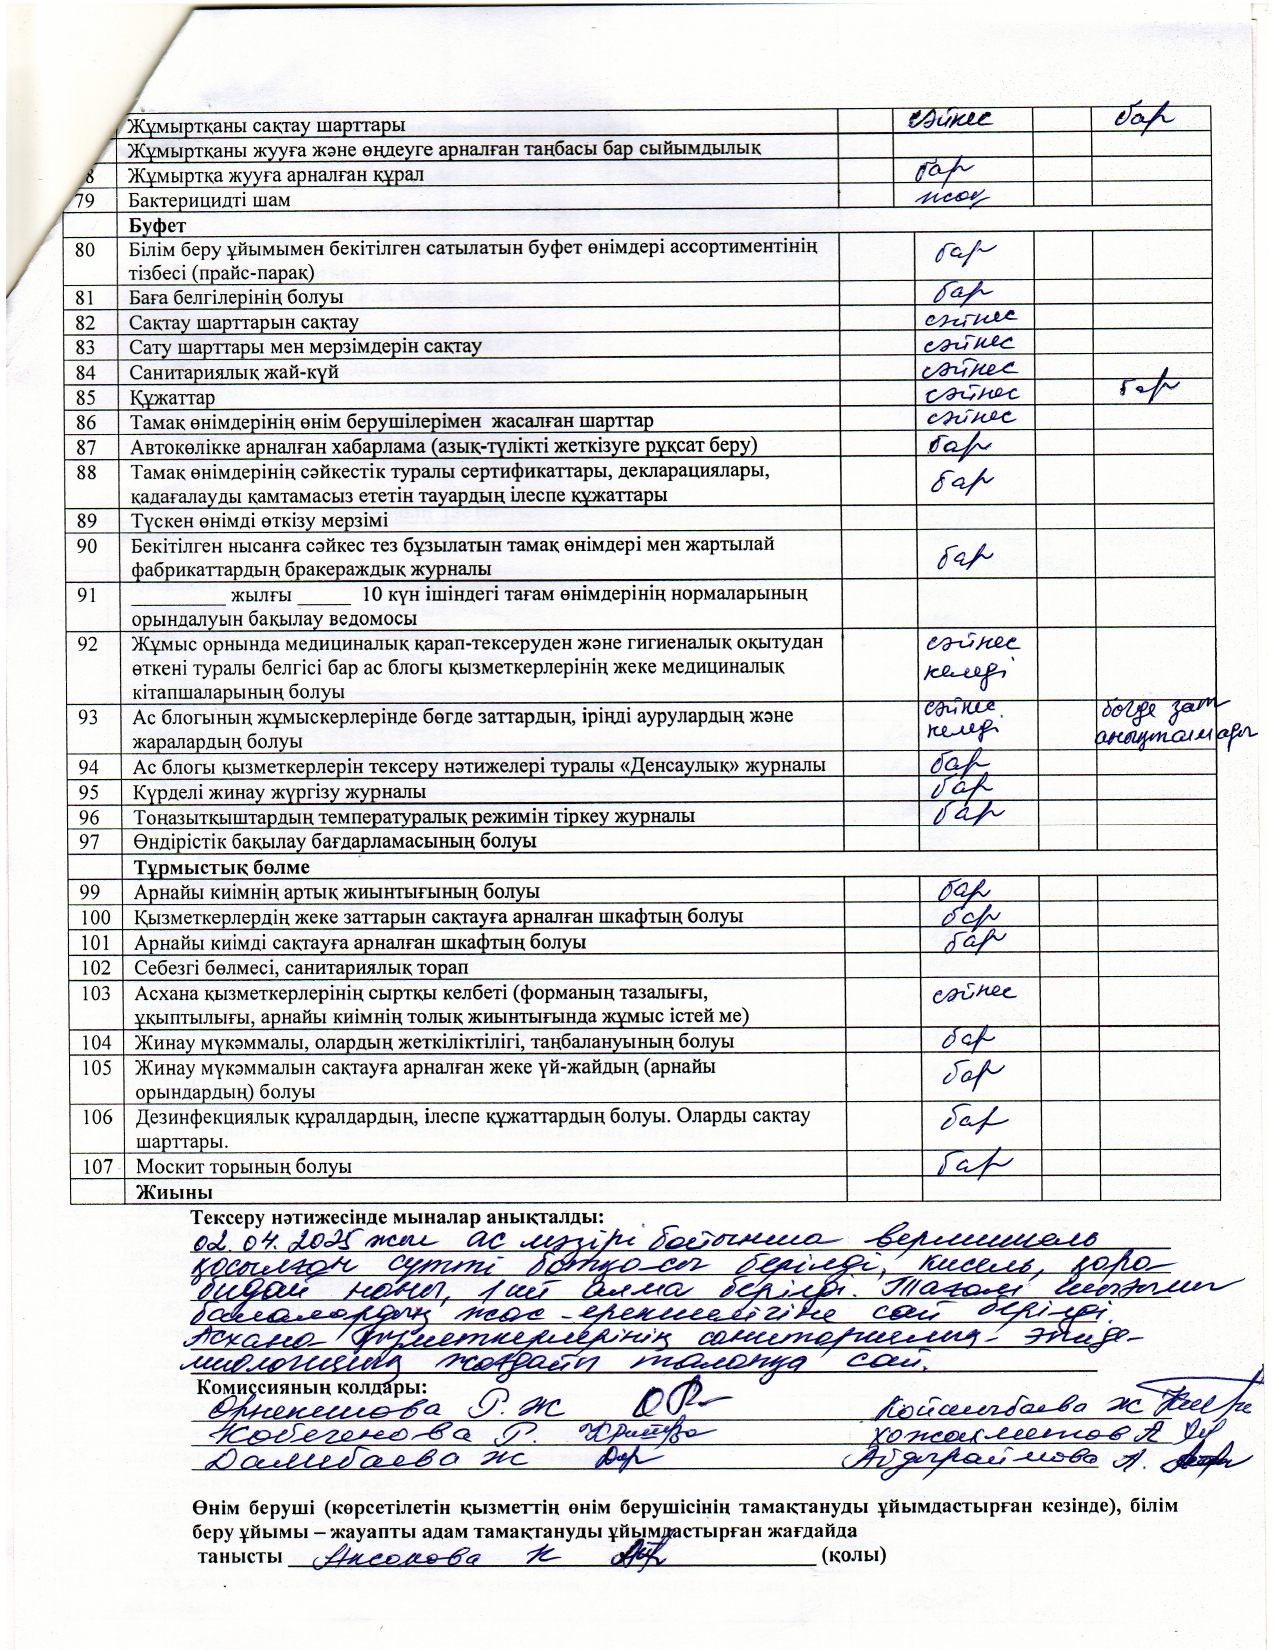 Жұмыртқаны сақтау шарттары сәйкес бар
Жұмыртқаны жууға және өңдеуге арналған таңбасы бар сыйымдылық
8 Жұмыртқа жууға арналған құрал бар
79 Бактерицидті шам жоқ
Буфет
80 Білім беру ұйымымен бекітілген сатылатын буфет өнімдері ассортиментінің бар
тізбесі (прайс-парақ)
81 Баға белгілерінің болуы бар
82 Сақтау шарттарын сақтау сәйкес
83 Сату шарттары мен мерзімдерін сақтау сәйкес
84 Санитариялық жай-күй сәйкес
85 Құжаттар сәйкес бар
86 Тамақ өнімдерінің өнім берушілерімен жасалған шарттар сәйкес
87 Автокөлікке арналған хабарлама (азық-түлікті жеткізуге рұқсат беру) бар
88 Тамақ өнімдерінің сәйкестік туралы сертификаттары, декларациялары, бар
қадағалауды қамтамасыз ететін тауардың ілеспе құжаттары
89 Түскен өнімді өткізу мерзімі
90 Бекітілген нысанға сәйкес тез бұзылатын тамақ өнімдері мен жартылай бар
фабрикаттардың бракераждық журналы
91 _________ жылғы _____ 10 күн ішіндегі тағам өнімдерінің нормаларының
орындалуын бақылау ведомосы
92 Жұмыс орнында медициналық қарап-тексеруден және гигиеналық оқытудан сәйкес
өткені туралы белгісі бар ас блогы қызметкерлерінің жеке медициналық келеді
кітапшаларының болуы
93 Ас блогының жұмыскерлерінде бөгде заттардың, іріңді аурулардың және сәйкес бөгде зат
жаралардың болуы келеді анықталмады
94 Ас блогы қызметкерлерін тексеру нәтижелері туралы «Денсаулық» журналы бар
95 Күрделі жинау жүргізу журналы бар
96 Тоңазытқыштардың температуралық режимін тіркеу журналы бар
97 Өндірістік бақылау бағдарламасының болуы
Тұрмыстық бөлме
99 Арнайы киімнің артық жиынтығының болуы бар
100 Қызметкерлердің жеке заттарын сақтауға арналған шкафтың болуы бар
101 Арнайы киімді сақтауға арналған шкафтың болуы бар
102 Себезгі бөлмесі, санитариялық торап
103 Асхана қызметкерлерінің сыртқы келбеті (форманың тазалығы, сәйкес
ұқыптылығы, арнайы киімнің толық жиынтығында жұмыс істей ме)
104 Жинау мүкәммалы, олардың жеткіліктілігі, таңбалануының болуы бар
105 Жинау мүкәммалын сақтауға арналған жеке үй-жайдың (арнайы бар
орындардың) болуы
106 Дезинфекциялық құралдардың, ілеспе құжаттардың болуы. Оларды сақтау бар
шарттары.
107 Москит торының болуы бар
Жиыны
Тексеру нәтижесінде мыналар анықталды:
02.04.2025 жыл ас мәзірі бойынша вермишель
қосылған сүтті ботқасы берілді, кисель, қара
бидай наны, 1 алма берілді. Тағам шығымы
балалардың жас ерекшелігіне сай берілді.
Асхана қызметкерлерінің санитариялық- эпиде-
миологиялық жағдайы талапқа сай.
Комиссияның қолдары:
Орнекешова Р. Ж Койшыбаева Ж
Кобегенова Г. Хожахметов А
Далибаева Ж Абдыраймова А.
Өнім беруші (көрсетілетін қызметтің өнім берушісінің тамақтануды ұйымдастырған кезінде), білім
беру ұйымы – жауапты адам тамақтануды ұйымдастырған жағдайда
танысты Аксакова К (қолы)